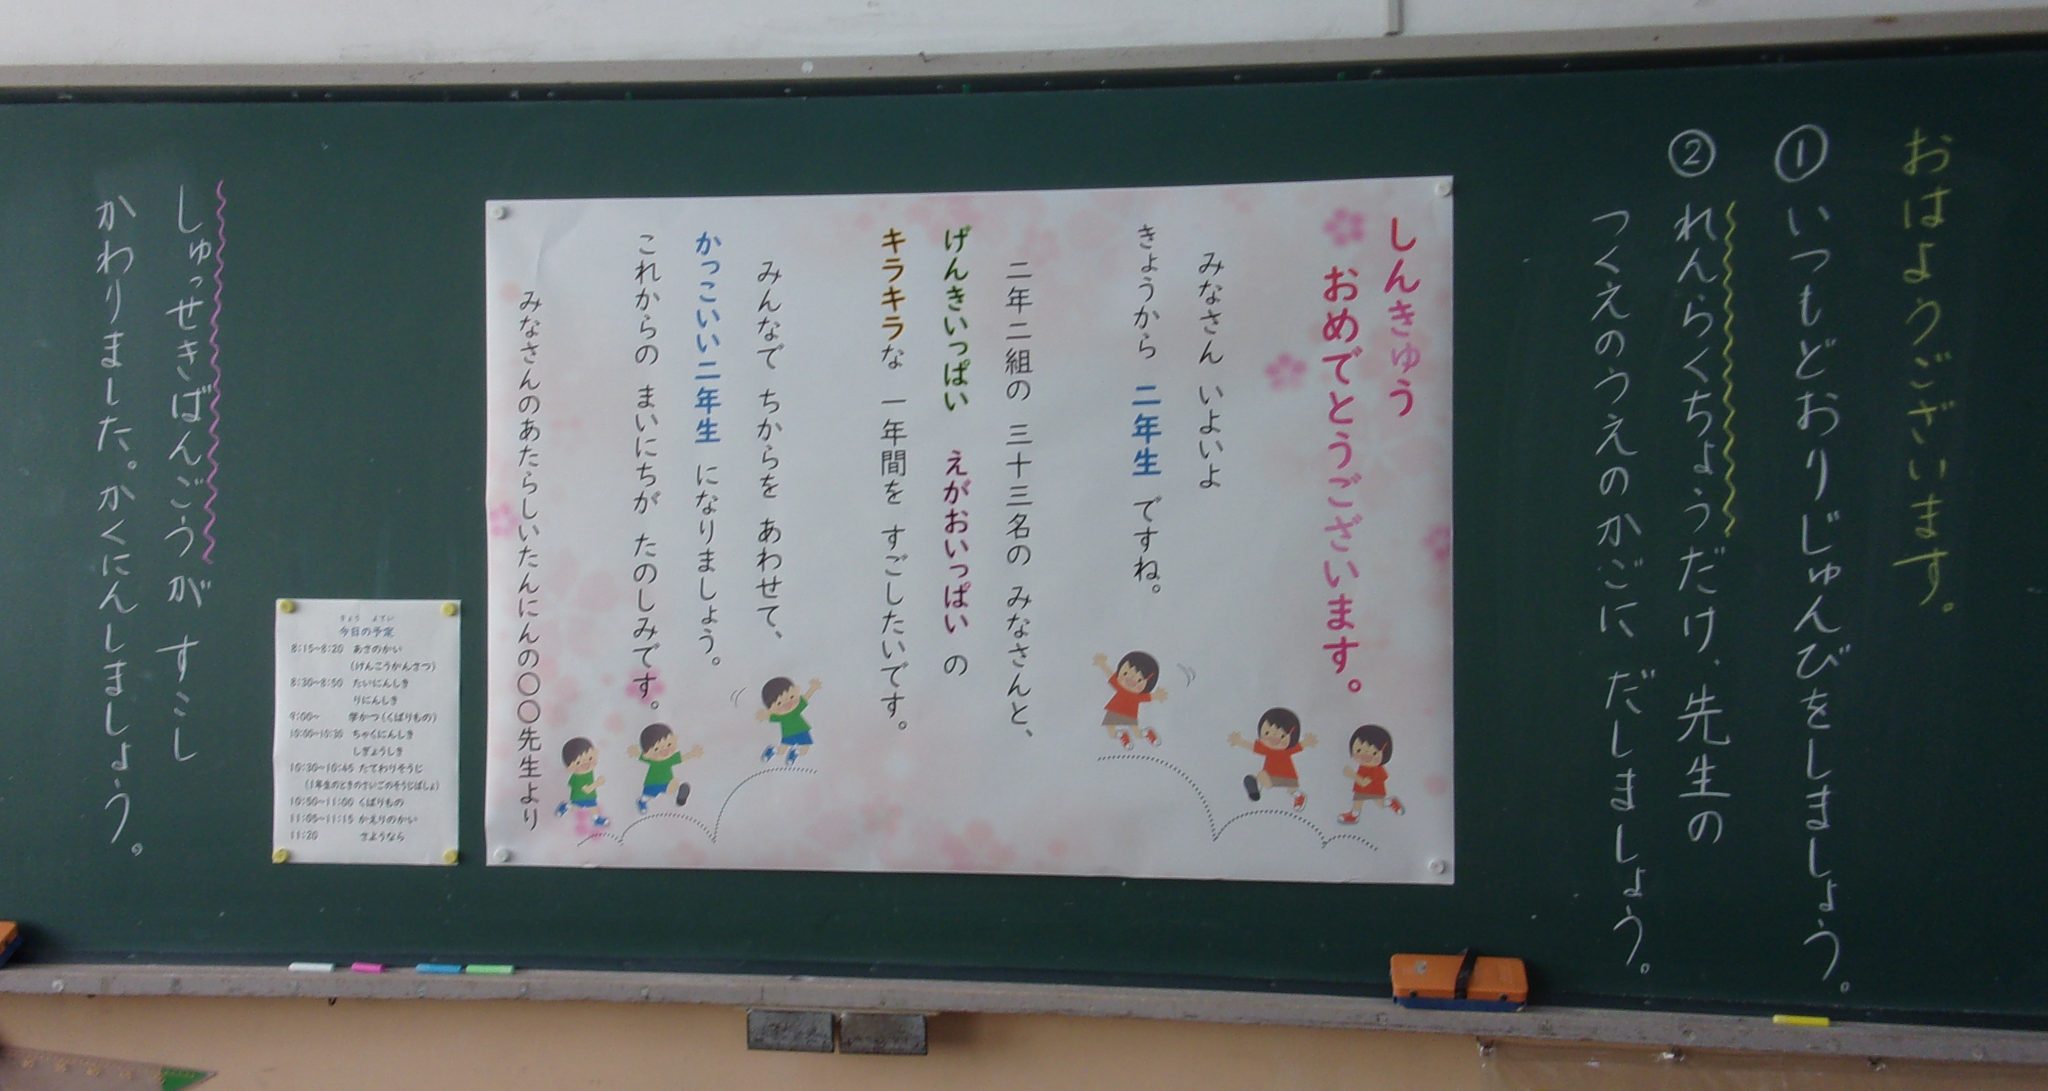 おはようございます。
① いつもどおりじゅんびをしましょう。
② れんらくちょうだけ、先生の
つくえのうえのかごに だしましょう。
しんきゅう
おめでとうございます。
みなさん いよいよ
きょうから 二年生 ですね。
二年二組の 三十三名の みなさんと、
げんきいっぱい えがおいっぱい の
キラキラな 一年間を すごしたいです。
みんなで ちからを あわせて、
かっこいい二年生 になりましょう。
これからの まいにちが たのしみです。
みなさんのあたらしいたんにんの〇〇〇先生より
きょう よてい
今日の予定
8:15~8:20 あさのかい
(けんこうかんさつ)
8:30~8:50 たいにんしき
りにんしき
9:00~ 学かつ(くばりもの)
10:00~10:30 ちゃくにんしき
しぎょうしき
10:30~10:45 たてわりそうじ
(1年生のときのさいごのそうじばしょ)
10:50~11:00 くばりもの
11:05~11:15 かえりのかい
11:20 さようなら
しゅっせきばんごうが すこし
かわりました。かくにんしましょう。